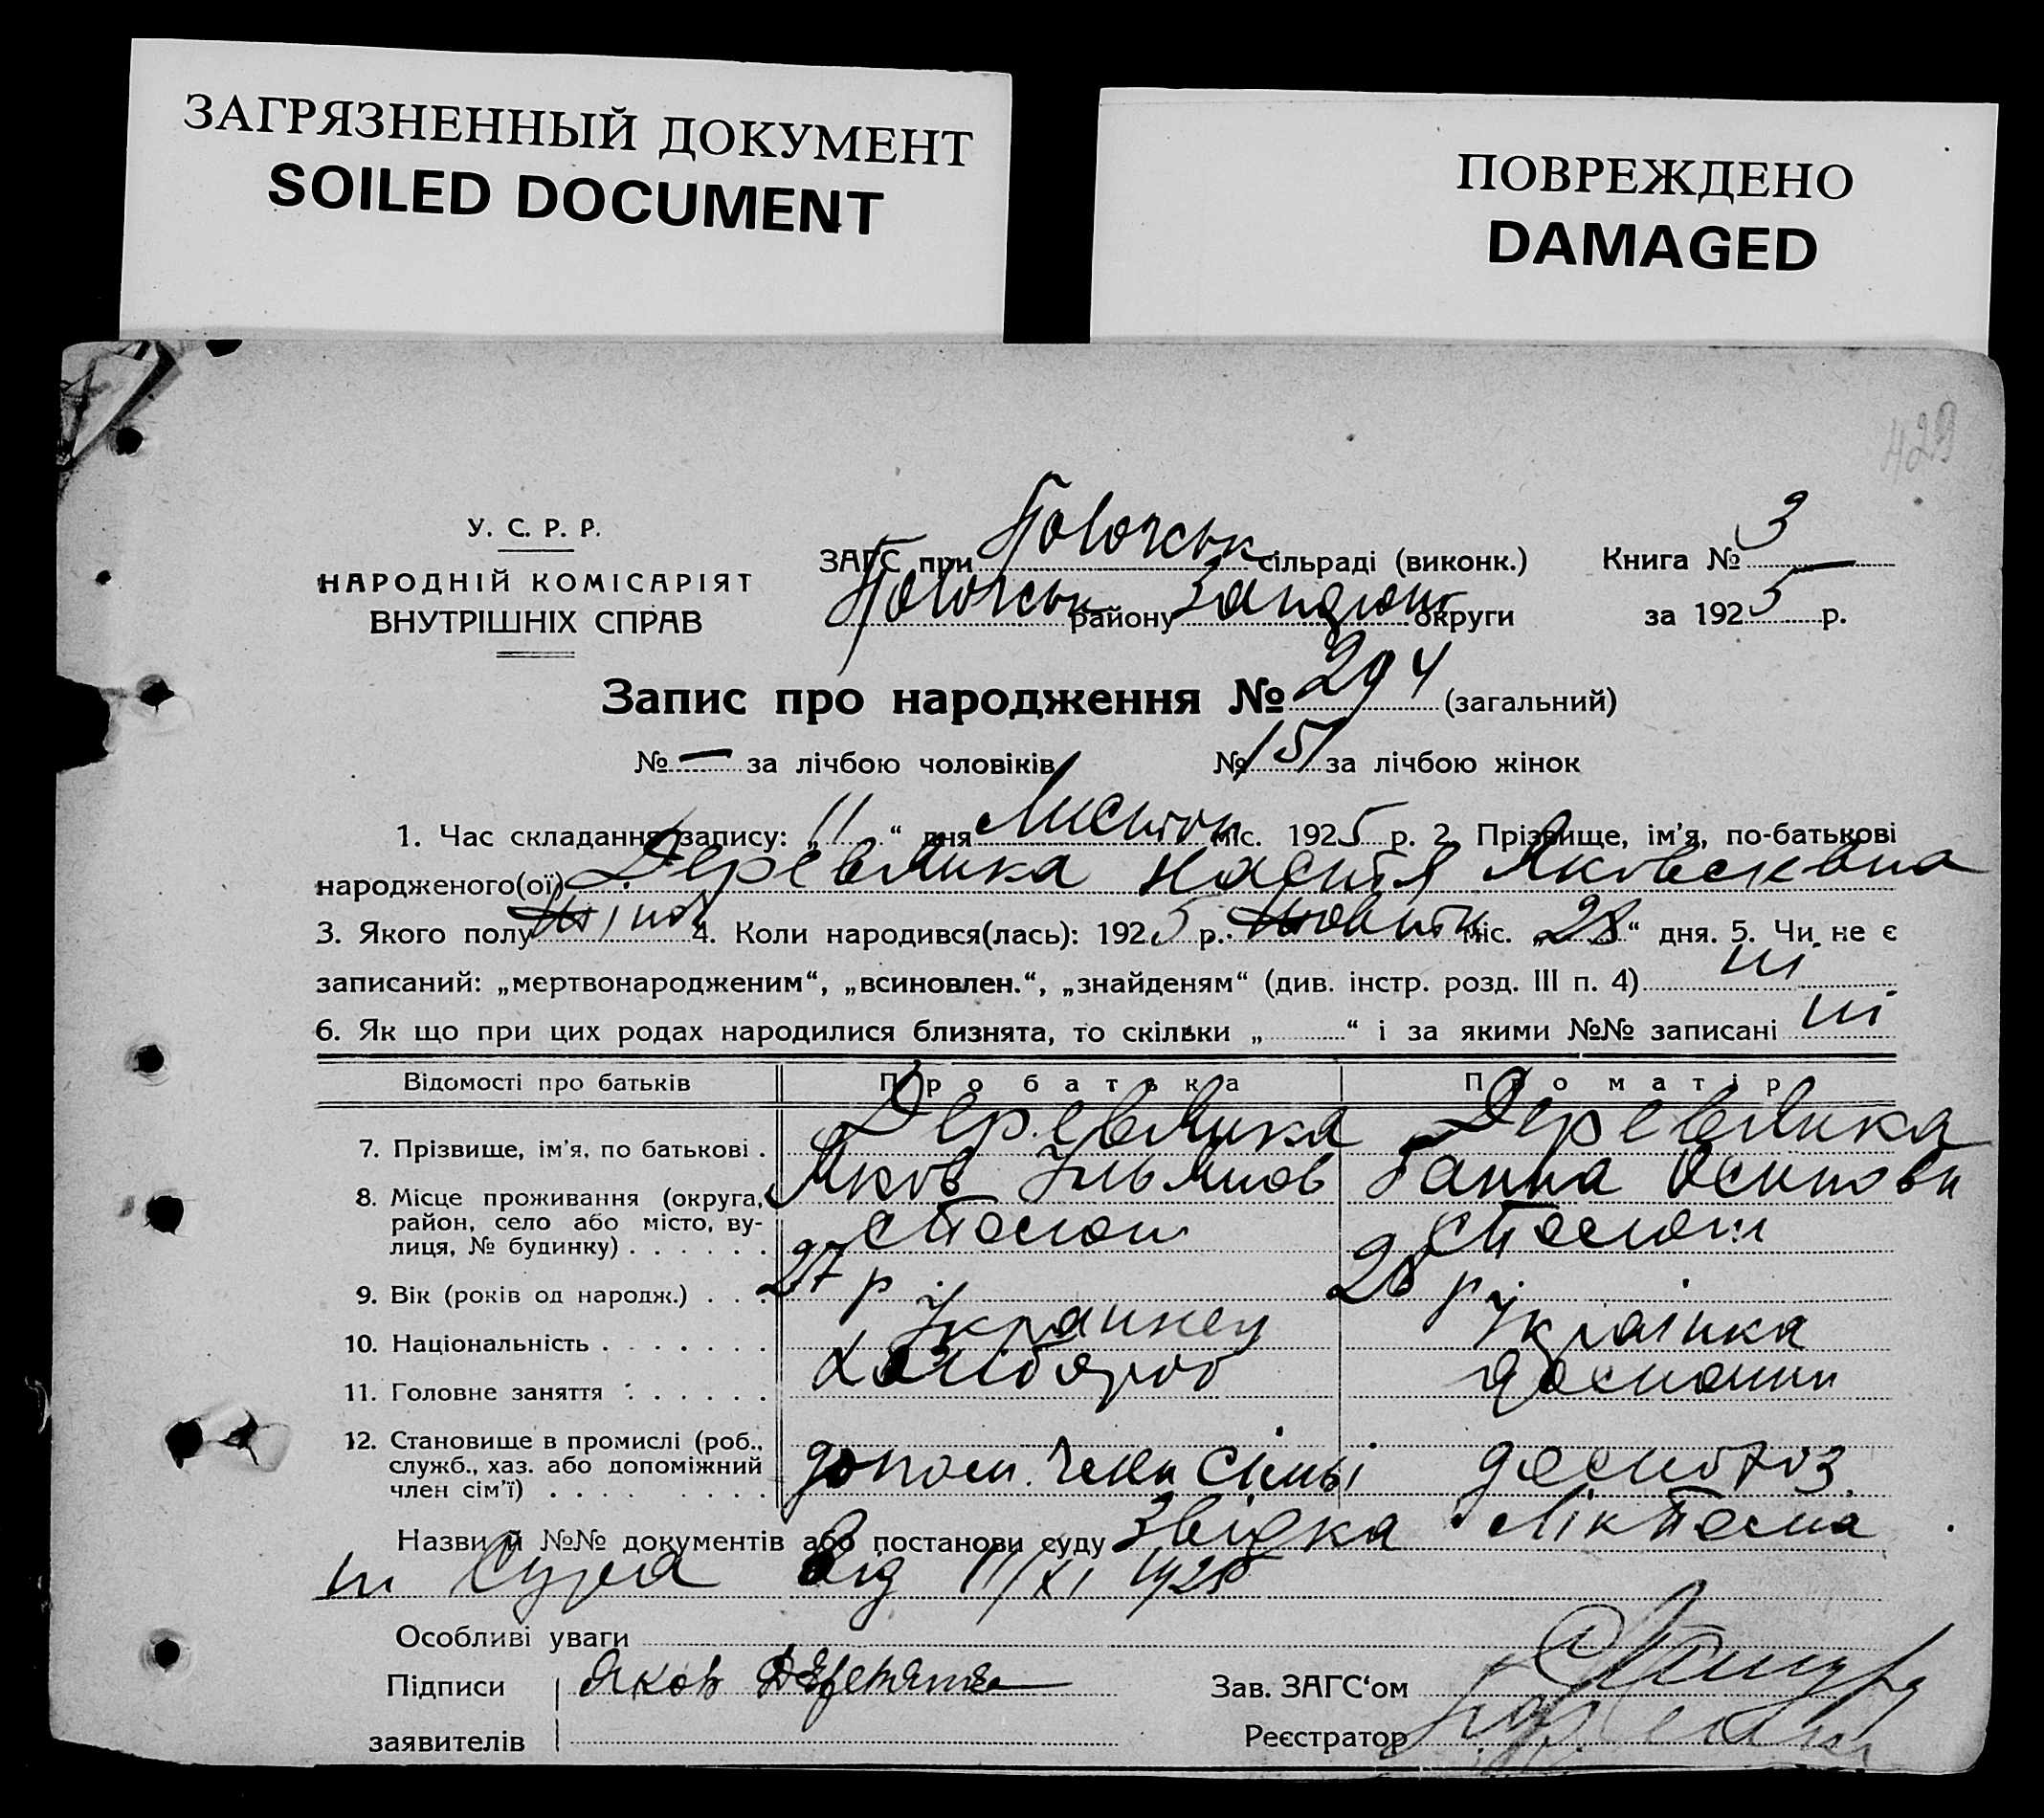 ЗАГРЯЗНЕННЫЙ ДОКУМЕНТ
SOILED DOCUMENT
ПОВРЕЖДЕНО
DAMAGED
429
У. С. Р. Р.
НАРОДНІЙ КОМІСАРІЯТ
ВНУТРІШНІХ СПРАВ
ЗАГС при Пологськ сільраді (виконк.)
Пологськ району Запдюж округи
Книга № 3
за 1925 р.
Запис про народження № 294 (загальний)
№ — за лічбою чоловіків № 151 за лічбою жінок
1. Час складання запису: „11“ дня Листоп міс. 1925 р. 2. Прізвище, ім’я, по-батькові
народженого(ої) Деревянка Настя Яковлевна
3. Якого полу жіноч 4. Коли народився(лась): 1925 р. Жовтн міс. „28“ дня. 5. Чи не є
записаний: „мертвонародженим“, „всиновлен.“, „знайденям“ (див. інстр. розд. III п. 4) ні
6. Як що при цих родах народилися близнята, то скільки „ “ і за якими №№ записані ні
Відомості про батьків Про батька Про матір
7. Прізвище, ім’я, по батькові . Деревянка Деревянка
Яков Ульянов Ганна Осиповн
8. Місце проживання (округа,
район, село або місто, ву-
лиця, № будинку) . . . . . .
9. Вік (років од народж.) . . . 27 р 28 р
10. Національність . . . . . . . Украинец Українка
11. Головне заняття . . . . . . Хлибороб
12. Становище в промислі (роб.,
служб., хаз. або допоміжний
член сім’ї) . . . . . . . . допом. член сімьї
Назви й №№ документів або постанови суду Звідка
від 11/XI 1925
Особливі уваги
Підписи Яков Деревянка Зав. ЗАГС‘ом
заявителів Реєстратор